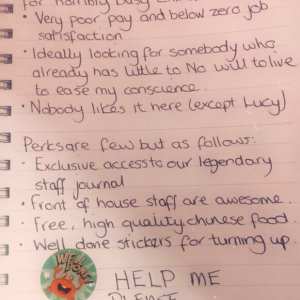 for horribly busy
• Very poor pay and below zero job
satisfaction
• Ideally looking for somebody who
already has little to No will to live
to ease my conscience.
• Nobody likes it here (except Lucy)
Perks are few but as follows:
• Exclusive access to our legendary
staff journal
• Front of house staff are awesome.
• Free, high quality chinese food.
• Well done stickers for turning up.
HELP ME